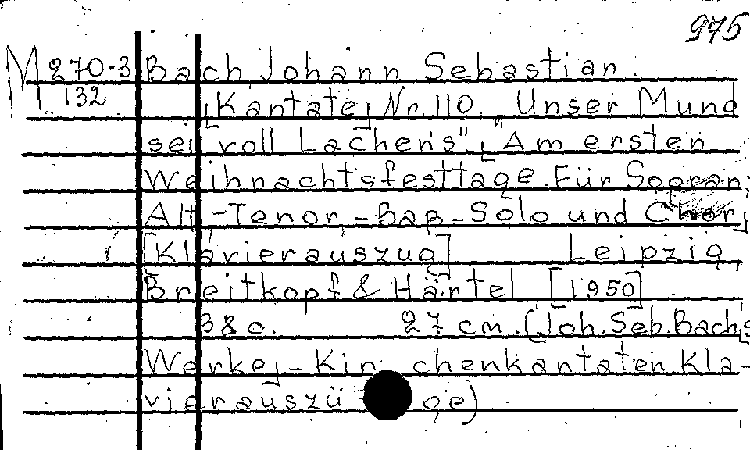 975
M 270-3 Bach, Johann Sebastian.
1 132 [Kantate] Nr. 110. „Unser Mund
sei voll Lachens“. „Am ersten
Weihnachtsfesttage Für Sopran,
Alt,-Tenor,-Baß-Solo und Chor,
[Klavierauszug] Leipzig,
Breitkopf & Härtel [1950]
38 c. 27 cm. (Joh. Seb. Bachs
Werke,-Kirchenkantaten Kla-
vierauszüge)